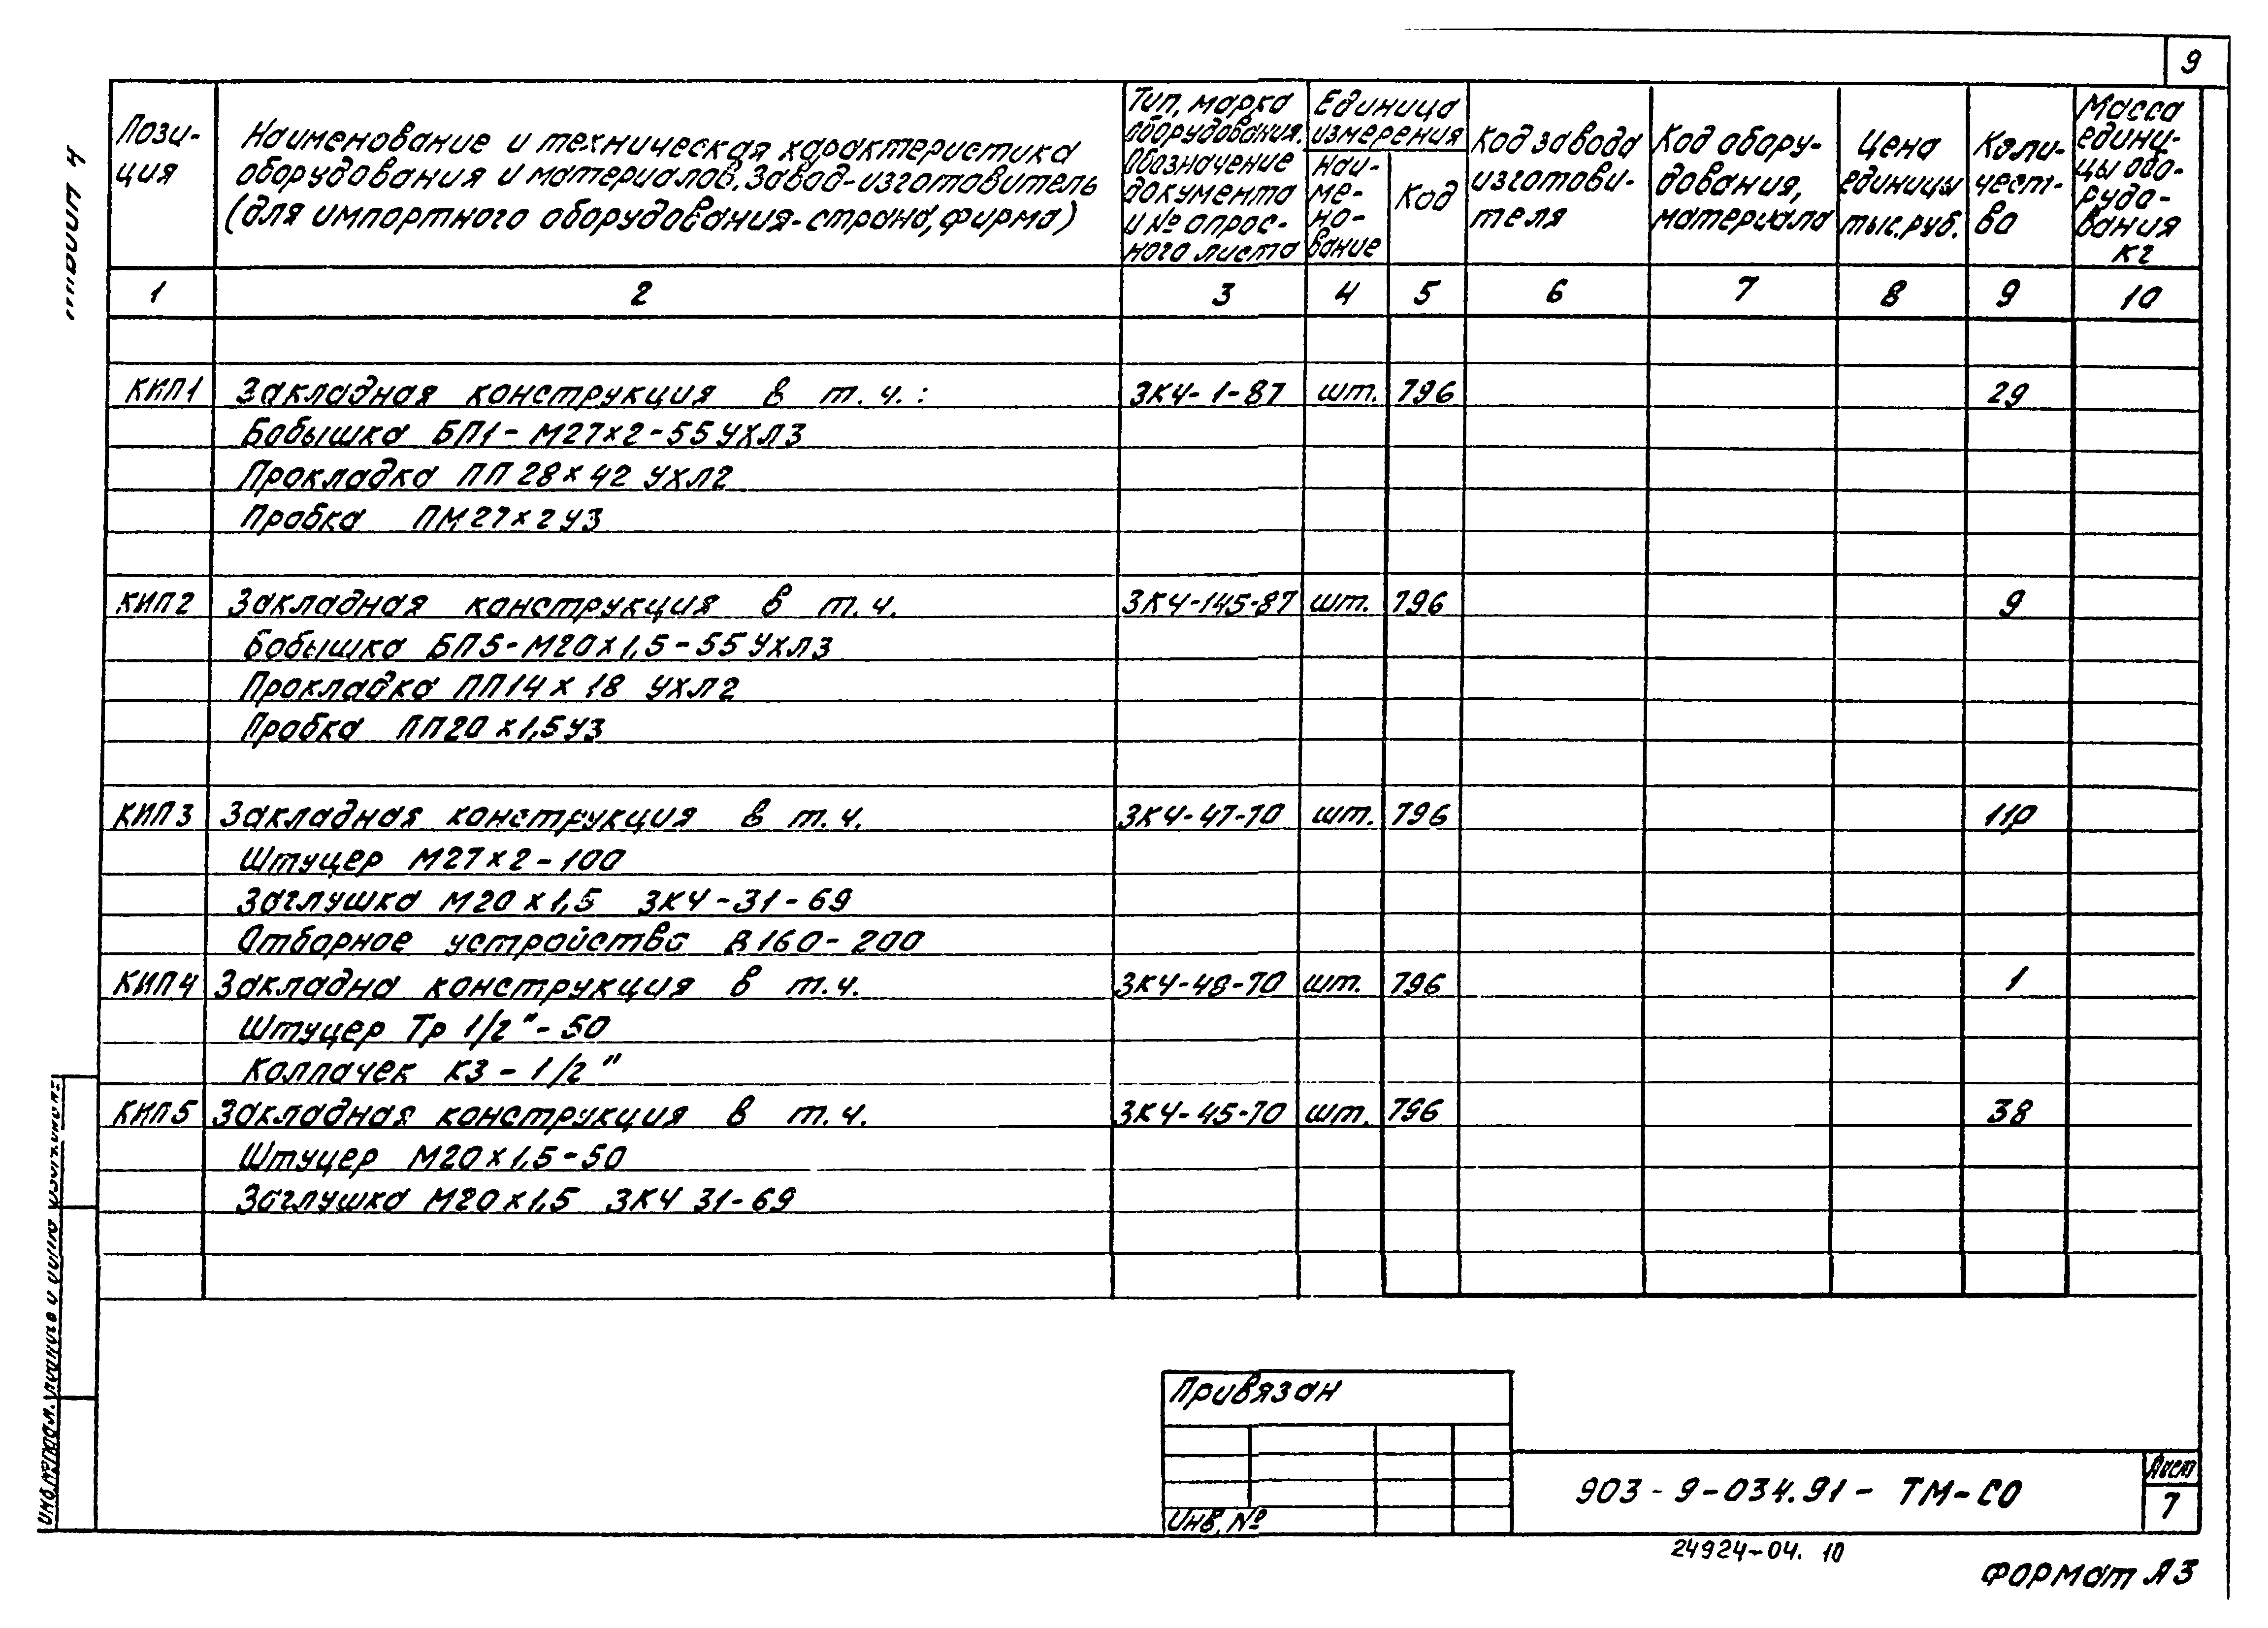 9
Пози-
ция
Наименование и техническая характеристика
оборудования и материалов. Завод-изготовитель
(для импортного оборудования-страна, фирма)
Тип, марка
оборудования.
Обозначение
документа
и № опрос-
ного листа
Единица
измерения
наи-
ме-
но-
вание
Код
Код завода
изготови-
теля
Код обору-
дования,
материала
Цена
единицы
тыс.руб.
Коли-
чест-
во
Масса
едини-
цы обо-
рудо-
вания
кг
1 2 3 4 5 6 7 8 9 10
КИП1 Закладная конструкция в т.ч.: ЗК4-1-87 шт. 796 29
Бобышка БП1-М27х2-55УХЛ3
Прокладка ПП 28х42 УХЛ2
Пробка ПМ27х2У3
КИП2 Закладная конструкция в т.ч. ЗК4-145-87 шт. 796 9
Бобышка БП5-М20х1,5-55УХЛ3
Прокладка ПП14х18 УХЛ2
Пробка ПП20х1,5У3
КИП3 Закладная конструкция в т.ч. ЗК4-47-70 шт. 796 110
Штуцер М27х2-100
Заглушка М20х1,5 ЗК4-31-69
Отборное устройство В160-200
КИП4 Закладна конструкция в т.ч. ЗК4-48-70 шт. 796 1
Штуцер Тр 1/2"-50
Колпачек К3-1/2"
КИП5 Закладная конструкция в т.ч. ЗК4-45-70 шт. 796 38
Штуцер М20х1,5-50
Заглушка М20х1,5 ЗК4 31-69
Привязан
Инв. №
903-9-034.91-ТМ-СО
Лист
7
24924-04. 10
Формат А3
Инв.№подл.